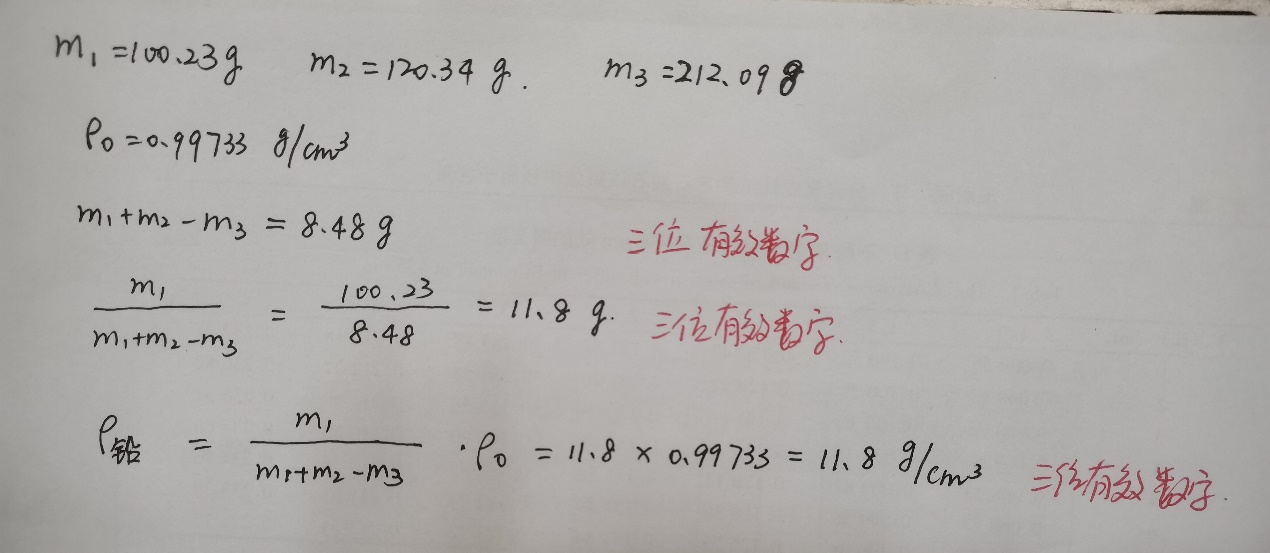 m₁ = 100.23 g m₂ = 120.34 g. m₃ = 212.09 g
ρ₀ = 0.99733 g/cm³
m₁ + m₂ - m₃ = 8.48 g 三位有效数字.
m₁/(m₁+m₂-m₃) = 100.23/8.48 = 11.8 g. 三位有效数字.
ρ铅 = m₁/(m₁+m₂-m₃) · ρ₀ = 11.8 × 0.99733 = 11.8 g/cm³ 三位有效数字.